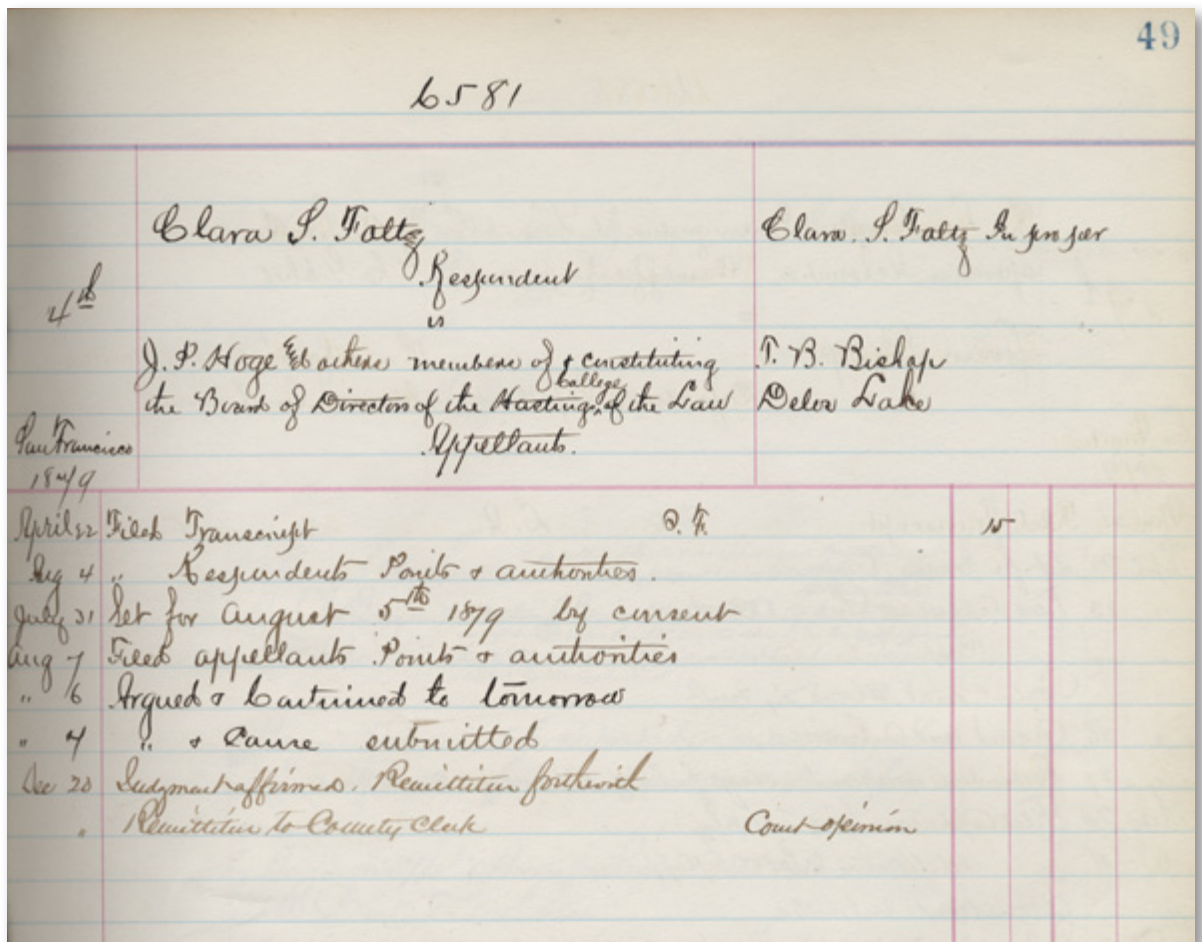 49
6581
Clara S. Foltz
Clara. S. Foltz In pro per
Respondent
4th
vs
J. P. Hoge & others members of & constituting
T. B. Bishop
College
the Board of Directors of the Hastings of the Law
Delos Lake
Appellants.
San Francisco
1879
April 22 Filed Transcript 15
Aug 4 " Respondents Points & authorities.
July 31 Set for August 5th 1879 by consent
Aug 7 Filed appellants Points & authorities
" 6 Argued & Continued to tomorrow
" 7 " & Cause submitted
Dec 20 Judgment affirmed. Remittitur forthwith
" Remittitur to County Clerk Court opinion